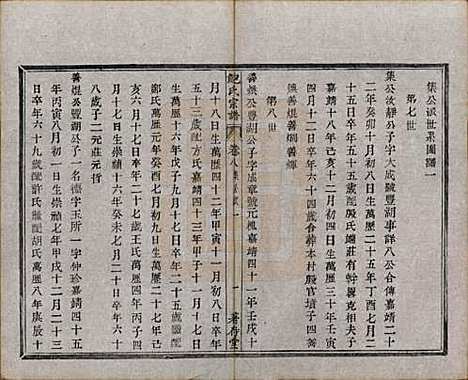 集公派世系圖譜一
第七世
集公汝靜公子字大成號豐湖事詳八公合傳嘉靖二十
二年癸卯十月初八日生萬歷二十五年丁酉七月二
十五日卒年五十五歲配殷氏端莊有幹畧克相夫子
嘉靖十八年己亥六月初九日生萬歷三十年壬寅
四月十二日卒年六十四歲合葬本村殿官墳子四善
燦善焜善熠善輝
第八世
善燦公豐湖公子字成章號元槐嘉靖四十一年壬戌十
鮑氏宗譜 卷八
著存堂
月十八日生萬歷四十二年甲寅十一月初八日卒年
五十三歲配方氏嘉靖四十三年甲子十一月十七日
生萬歷十六年戊子九月二日卒年二十五歲繼配
鄭氏萬歷元年癸酉七月初二日生萬歷二十七年己
亥六月十三日卒年二十七歲王氏萬歷四年丙子四
月十七日生崇禎十六年癸未七月二十日卒年六十
八歲子二元莊元哲
善焜公豐湖公子一名燾字玉所一字仲珍嘉靖四十五
年丙寅八月初一日生崇禎七年甲戌十二月二十三
日卒年六十九歲配許氏繼配胡氏萬歷八年庚辰十